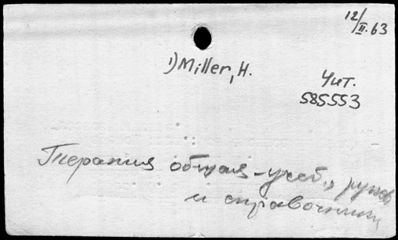 12/II.63
1) Miller, H.
Чит.
585553
Терапия общая - учеб., руков.
и справочники